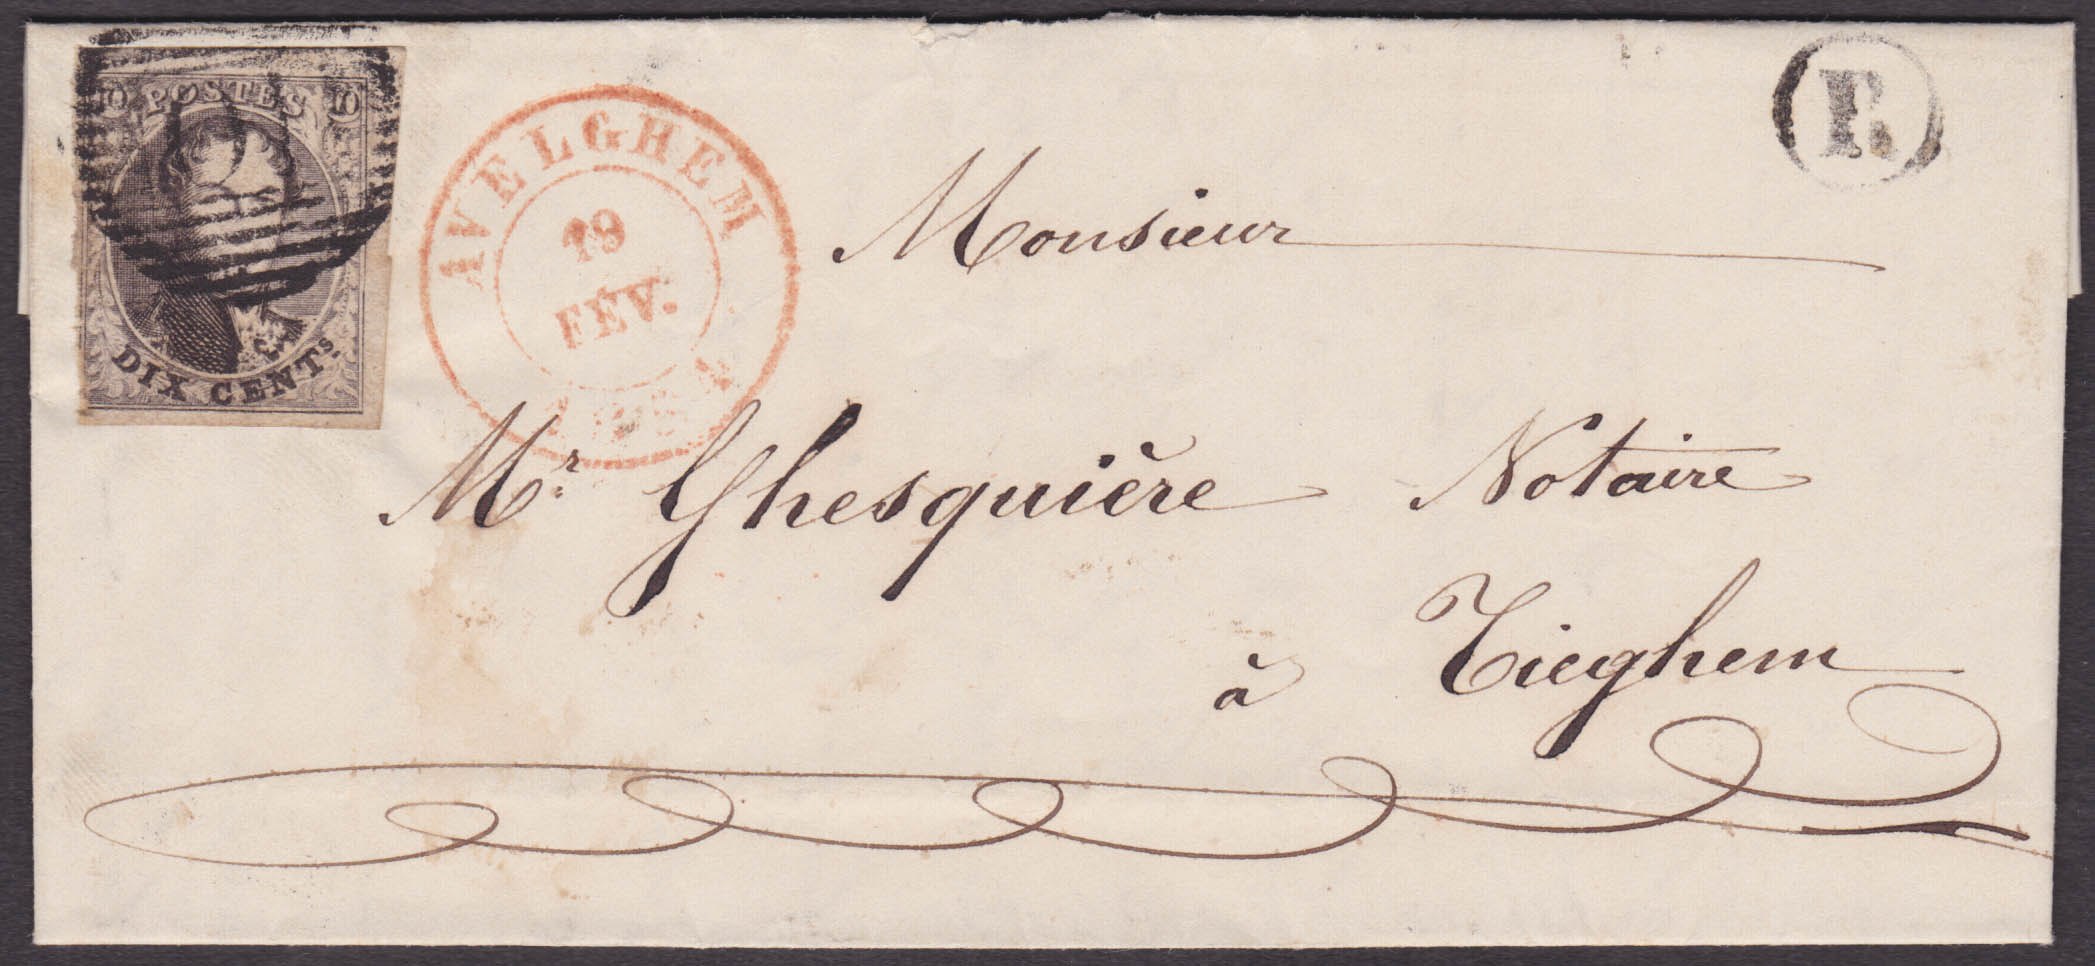 10 POSTES 10
DIX CENTS.
AVELGHEM
19
FÉV.
R.
Monsieur
Mr. Ghesquière Notaire
à Tieghem